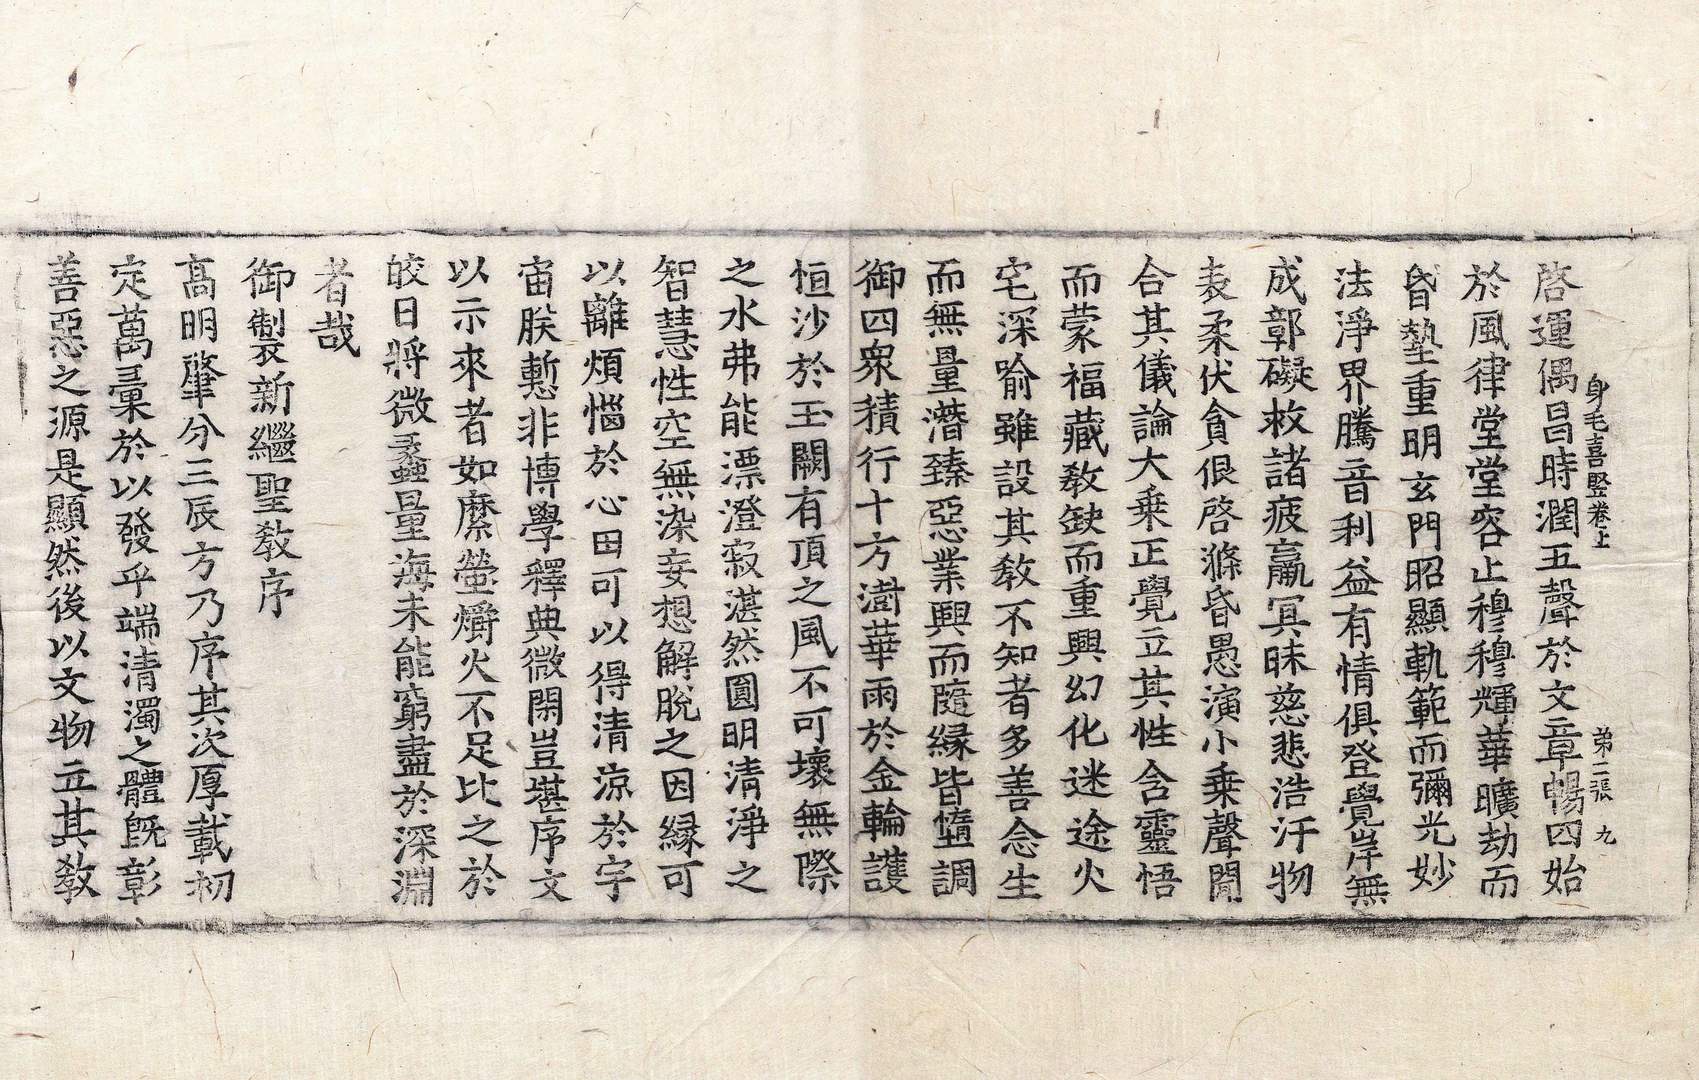 身毛喜竪卷上 第二張 九
啓運偶昌時潤五聲於文章暢四始
於風律堂堂容止穆穆輝華曠劫而
昏墊重明玄門昭顯軌範而彌光妙
法淨界騰音利益有情俱登覺岸無
成鄣礙救諸疲羸冥昧慈悲浩汗物
表柔伏貪佷啓滌昏愚演小乘聲聞
合其儀論大乘正覺立其性含靈悟
而蒙福藏教缺而重興幻化迷途火
宅深喻雖設其教不知者多善念生
而無量潛臻惡業興而隨緣皆墮調
御四衆積行十方澍華雨於金輪護
恒沙於玉闕有頂之風不可壞無際
之水弗能漂澄寂湛然圓明清淨之
智慧性空無染妄想解脫之因緣可
以離煩惱於心田可以得清涼於宇
宙朕慙非博學釋典微閑豈堪序文
以示來者如縻螢爝火不足比之於
皎日將微蠡量海未能窮盡於深淵
者哉
御製新繼聖教序
高明肇分三辰方乃序其次厚載初
定萬彙於以發乎端清濁之體既彰
善惡之源是顯然後以文物立其教